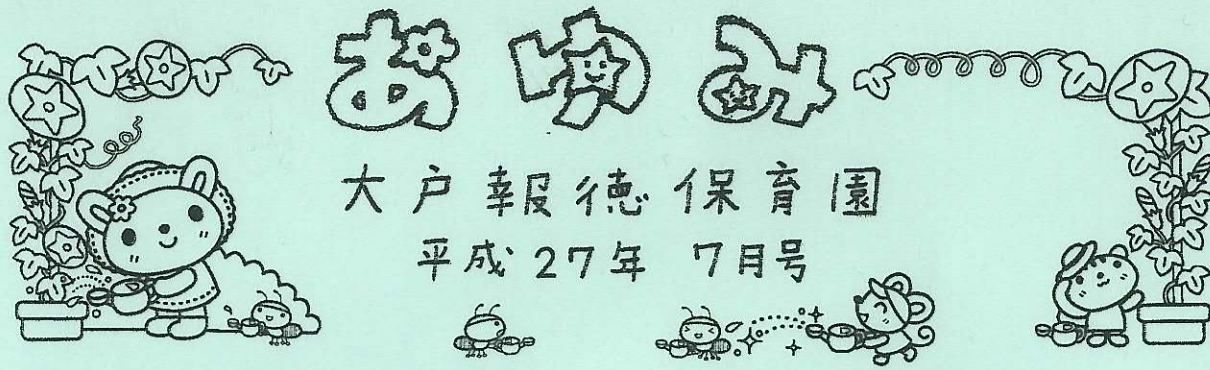 あゆみ
大戸報徳保育園
平成27年 7月号